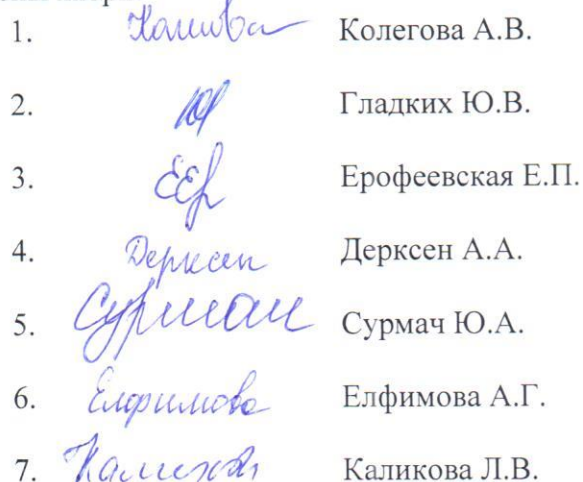 1. Колегова А.В.
2. Гладких Ю.В.
3. Ерофеевская Е.П.
4. Дерксен Дерксен А.А.
5. Сурмач Сурмач Ю.А.
6. Елфимова Елфимова А.Г.
7. Каликова Л.В.